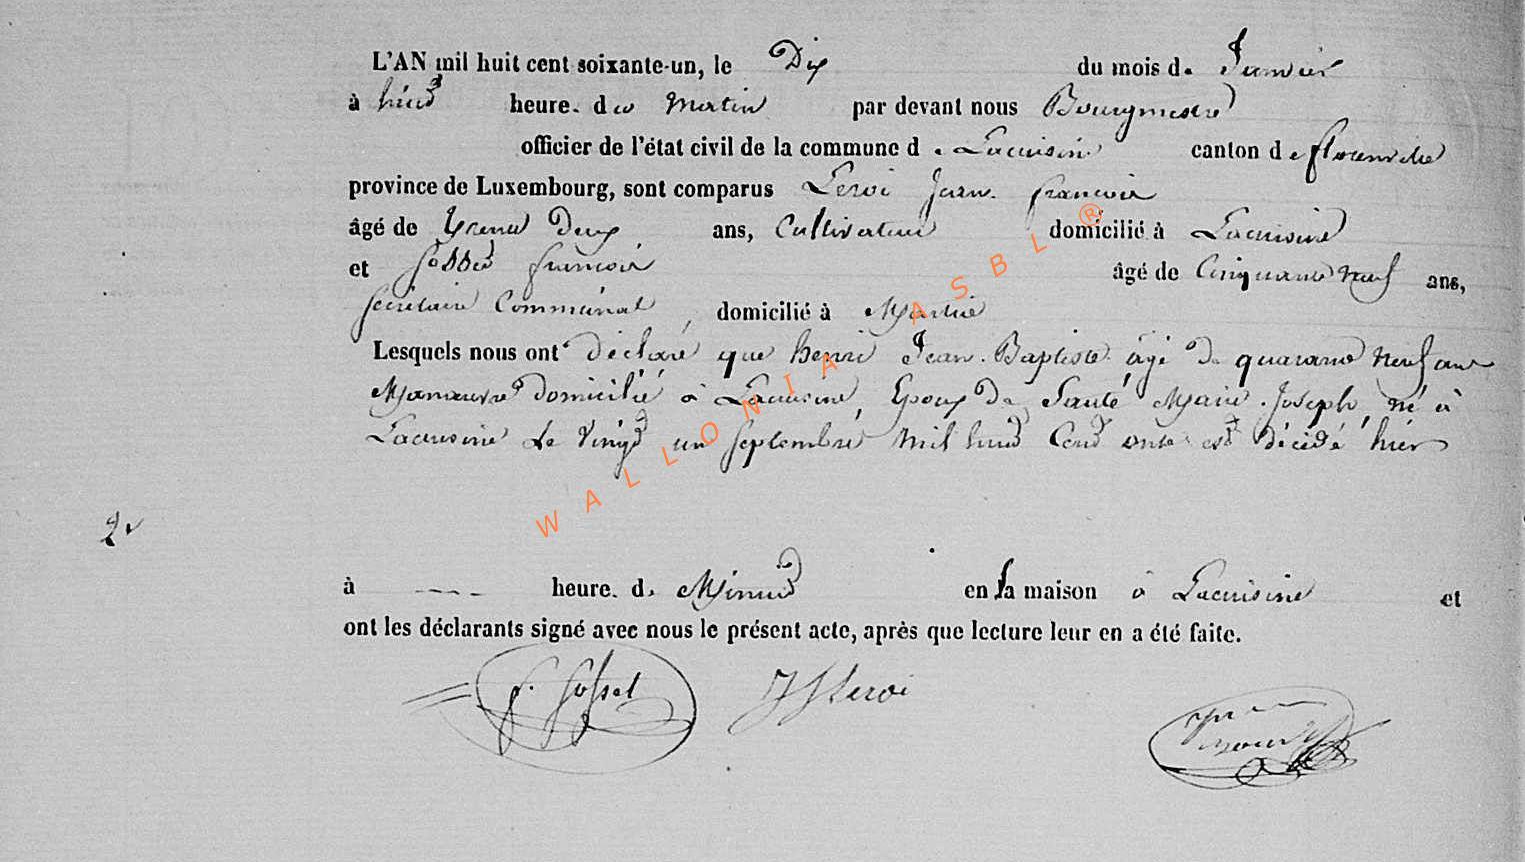 L'AN mil huit cent soixante-un, le Dix du mois de Janvier
à huit heure. du Matin par devant nous Bourgmestre
officier de l'état civil de la commune de Lacuisine canton de florenville
province de Luxembourg, sont comparus Leroi Jean francois
âgé de trente Deux ans, Cultivateur domicilié à Lacuisine
et francois âgé de Cinquante neuf ans,
secrétaire Communal, domicilié à
Lesquels nous ont déclaré que henri Jean Baptiste âgé de quarante neuf ans
Manœuvre domicilié à Lacuisine, Epoux de Santé Marie Joseph, né à
Lacuisine le vingt un septembre mil huit Cent onze est décédé hier
2
à ---- heure. de Minuit en sa maison à Lacuisine et
ont les déclarants signé avec nous le présent acte, après que lecture leur en a été faite.
f. Gosset JfLeroi
WALLONIA ASBL ®